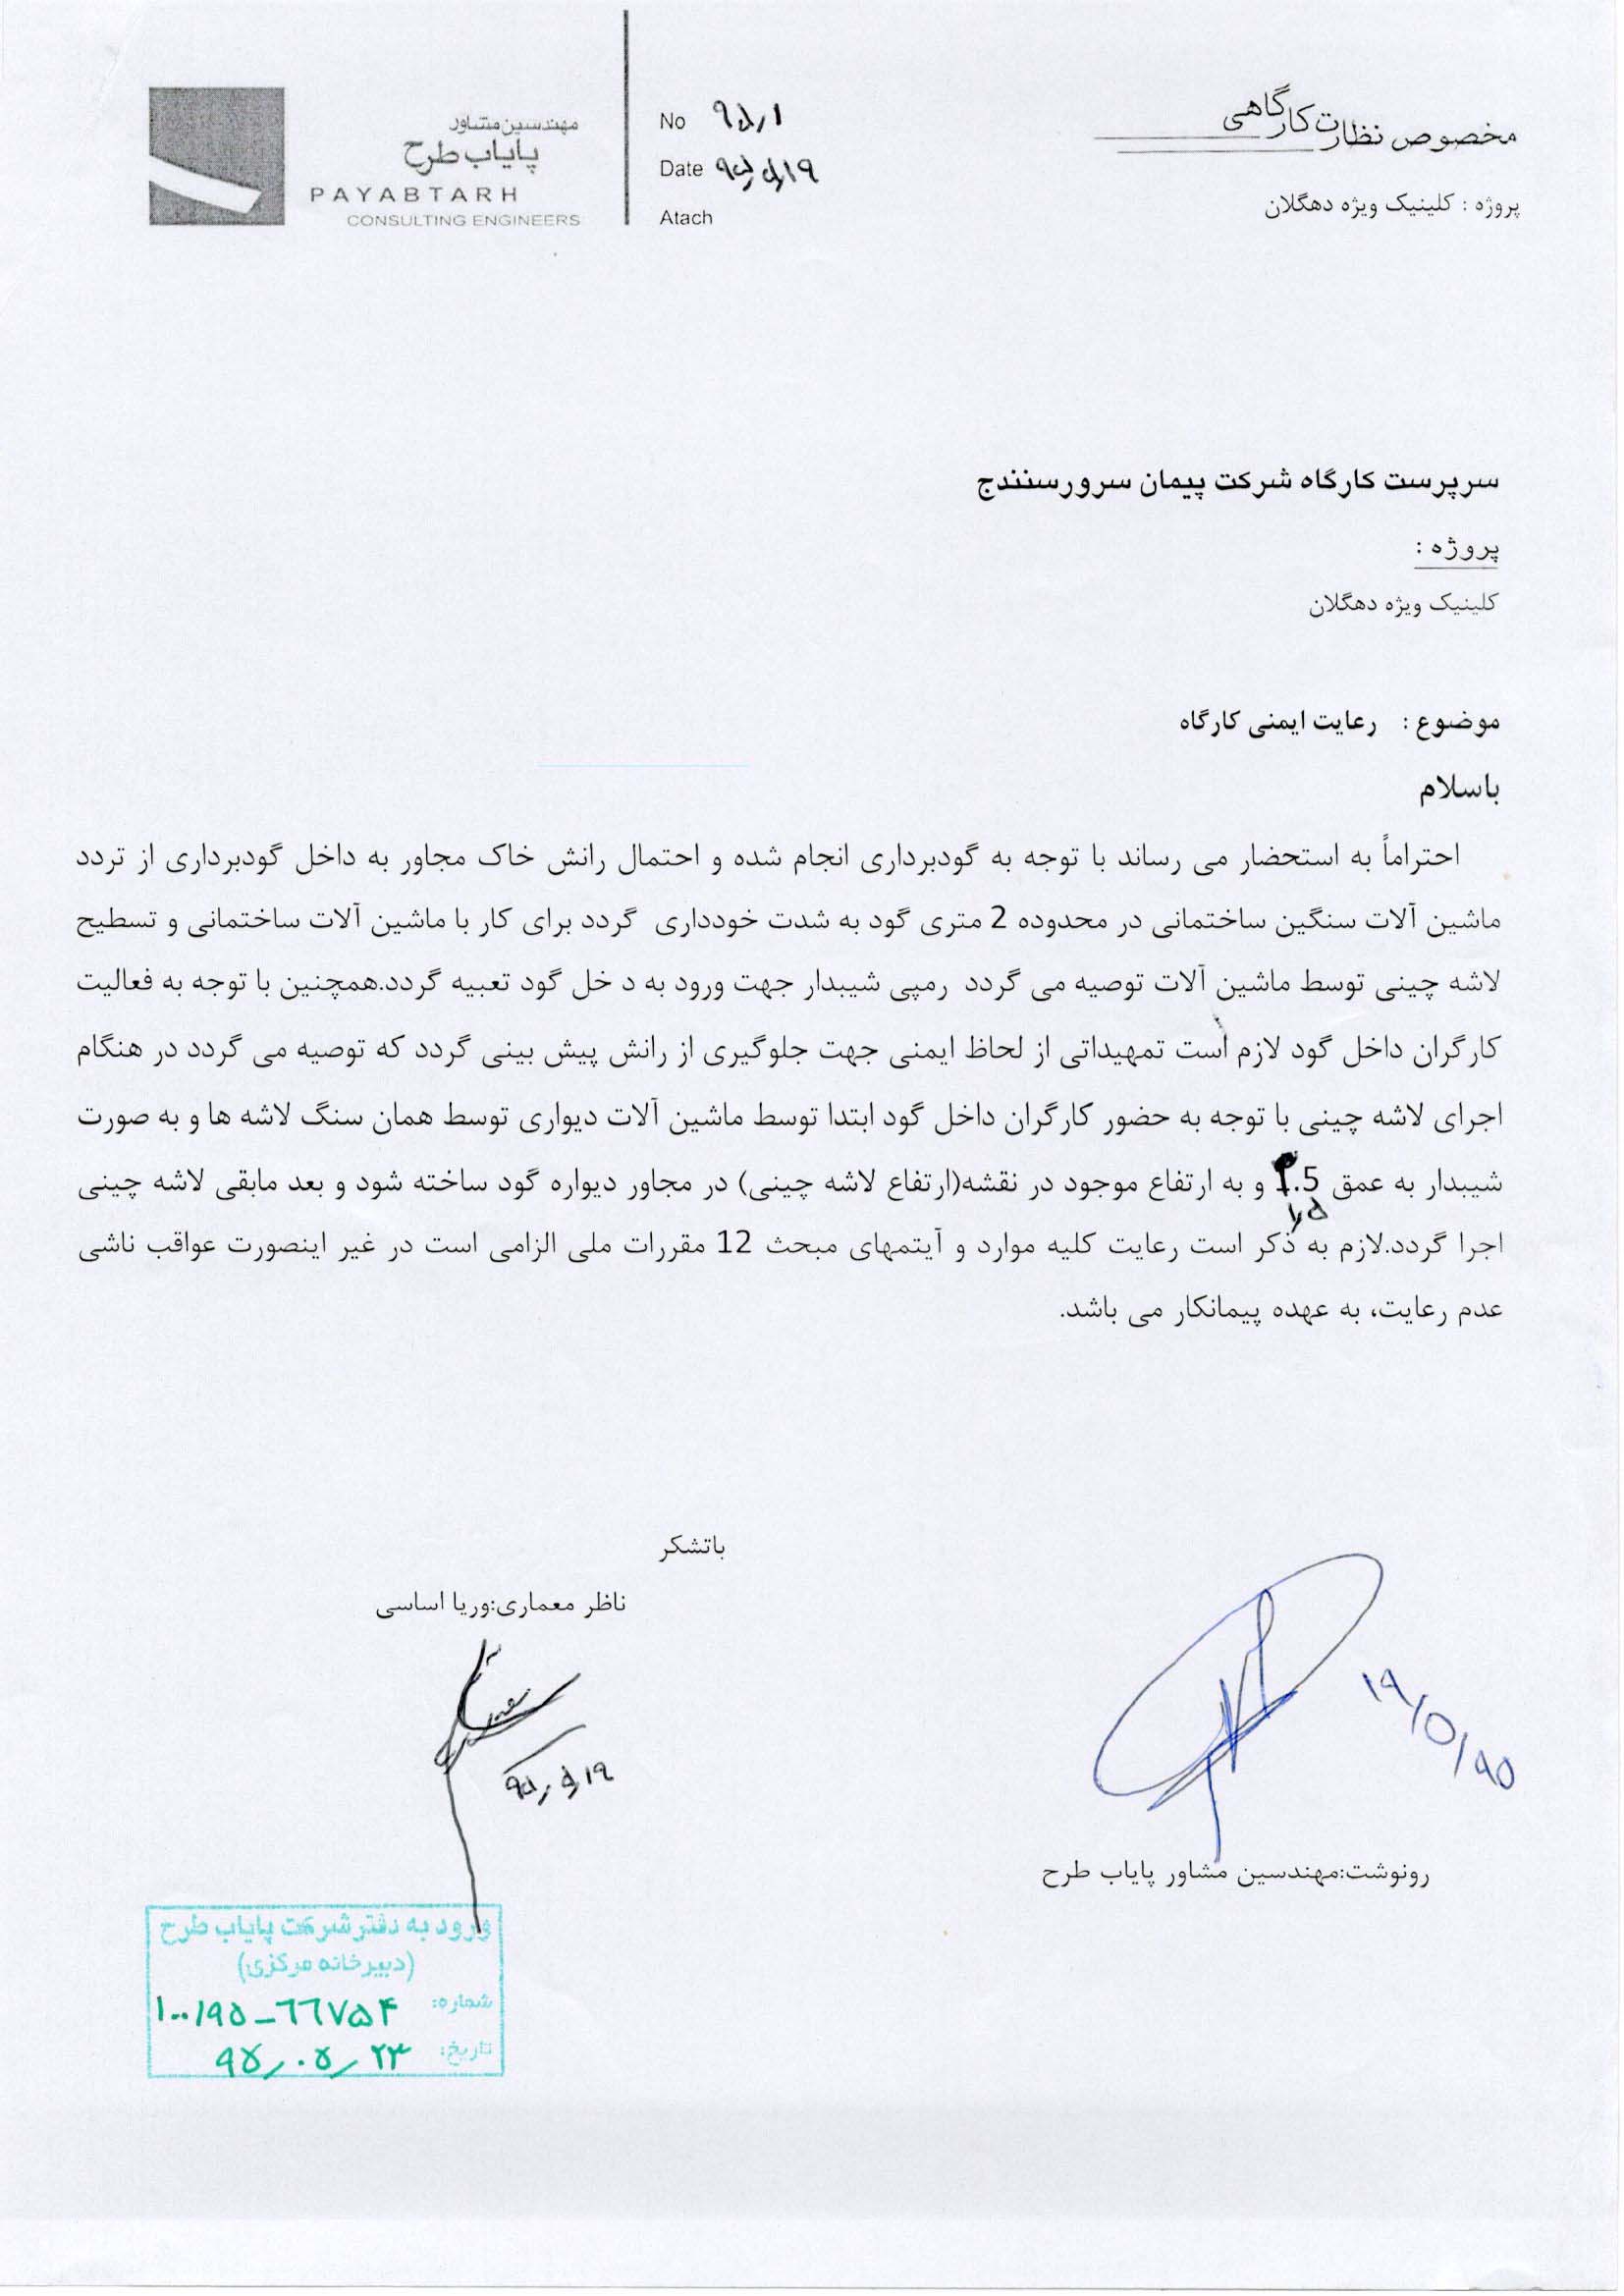 مخصوص نظارت کارگاهی
پروژه : کلینیک ویژه دهگلان
No ۹۵٫۱
Date ۹۵٫۵٫۱۹
Atach
مهندسین مشاور
پایاب طرح
PAYABTARH
CONSULTING ENGINEERS
سرپرست کارگاه شرکت پیمان سرورسنندج
پروژه :
کلینیک ویژه دهگلان
موضوع : رعایت ایمنی کارگاه
باسلام
احتراماً به استحضار می رساند با توجه به گودبرداری انجام شده و احتمال رانش خاک مجاور به داخل گودبرداری از تردد
ماشین آلات سنگین ساختمانی در محدوده 2 متری گود به شدت خودداری گردد برای کار با ماشین آلات ساختمانی و تسطیح
لاشه چینی توسط ماشین آلات توصیه می گردد رمپی شیبدار جهت ورود به د خل گود تعبیه گردد.همچنین با توجه به فعالیت
کارگران داخل گود لازم است تمهیداتی از لحاظ ایمنی جهت جلوگیری از رانش پیش بینی گردد که توصیه می گردد در هنگام
اجرای لاشه چینی با توجه به حضور کارگران داخل گود ابتدا توسط ماشین آلات دیواری توسط همان سنگ لاشه ها و به صورت
شیبدار به عمق .5 و به ارتفاع موجود در نقشه(ارتفاع لاشه چینی) در مجاور دیواره گود ساخته شود و بعد مابقی لاشه چینی
اجرا گردد.لازم به ذکر است رعایت کلیه موارد و آیتمهای مبحث 12 مقررات ملی الزامی است در غیر اینصورت عواقب ناشی
عدم رعایت، به عهده پیمانکار می باشد.
باتشکر
ناظر معماری:وریا اساسی
۹۵٫۵٫۱۹
۱۹/۵/۹۵
رونوشت:مهندسین مشاور پایاب طرح
ورود به دفتر شرکت پایاب طرح
(دبیرخانه مرکزی)
شماره: ۱۰۰/۹۵-۶۶۷۵۴
تاریخ: ۹۵٫۰۵٫۲۳